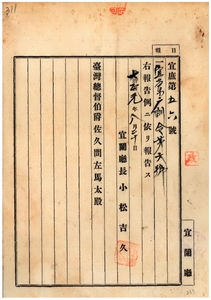 311
目種
宜庶第五六號
一宜蘭廳訓令第六號
右報告例ニ依リ報告ス
大正元年八月三十日
宜蘭廳長小松吉久
臺灣總督伯爵佐久間左馬太殿
宜蘭廳